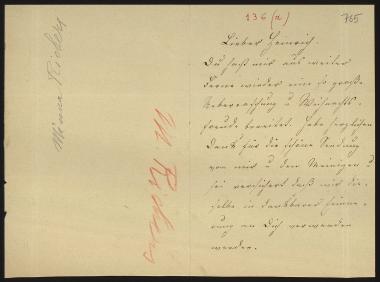 136 (a)
765
Lieber Heinrich.
Du hast mir aus weiter
Ferne wieder eine so große
Ueberraschung u Weihnachts-
freude bereitet. Habe herzlichen
Dank für die schöne Sendung
von mir u den Meinigen u
sei versichert daß wir die-
selbe in dankbarer Erinne-
rung an Dich verwenden
werden.